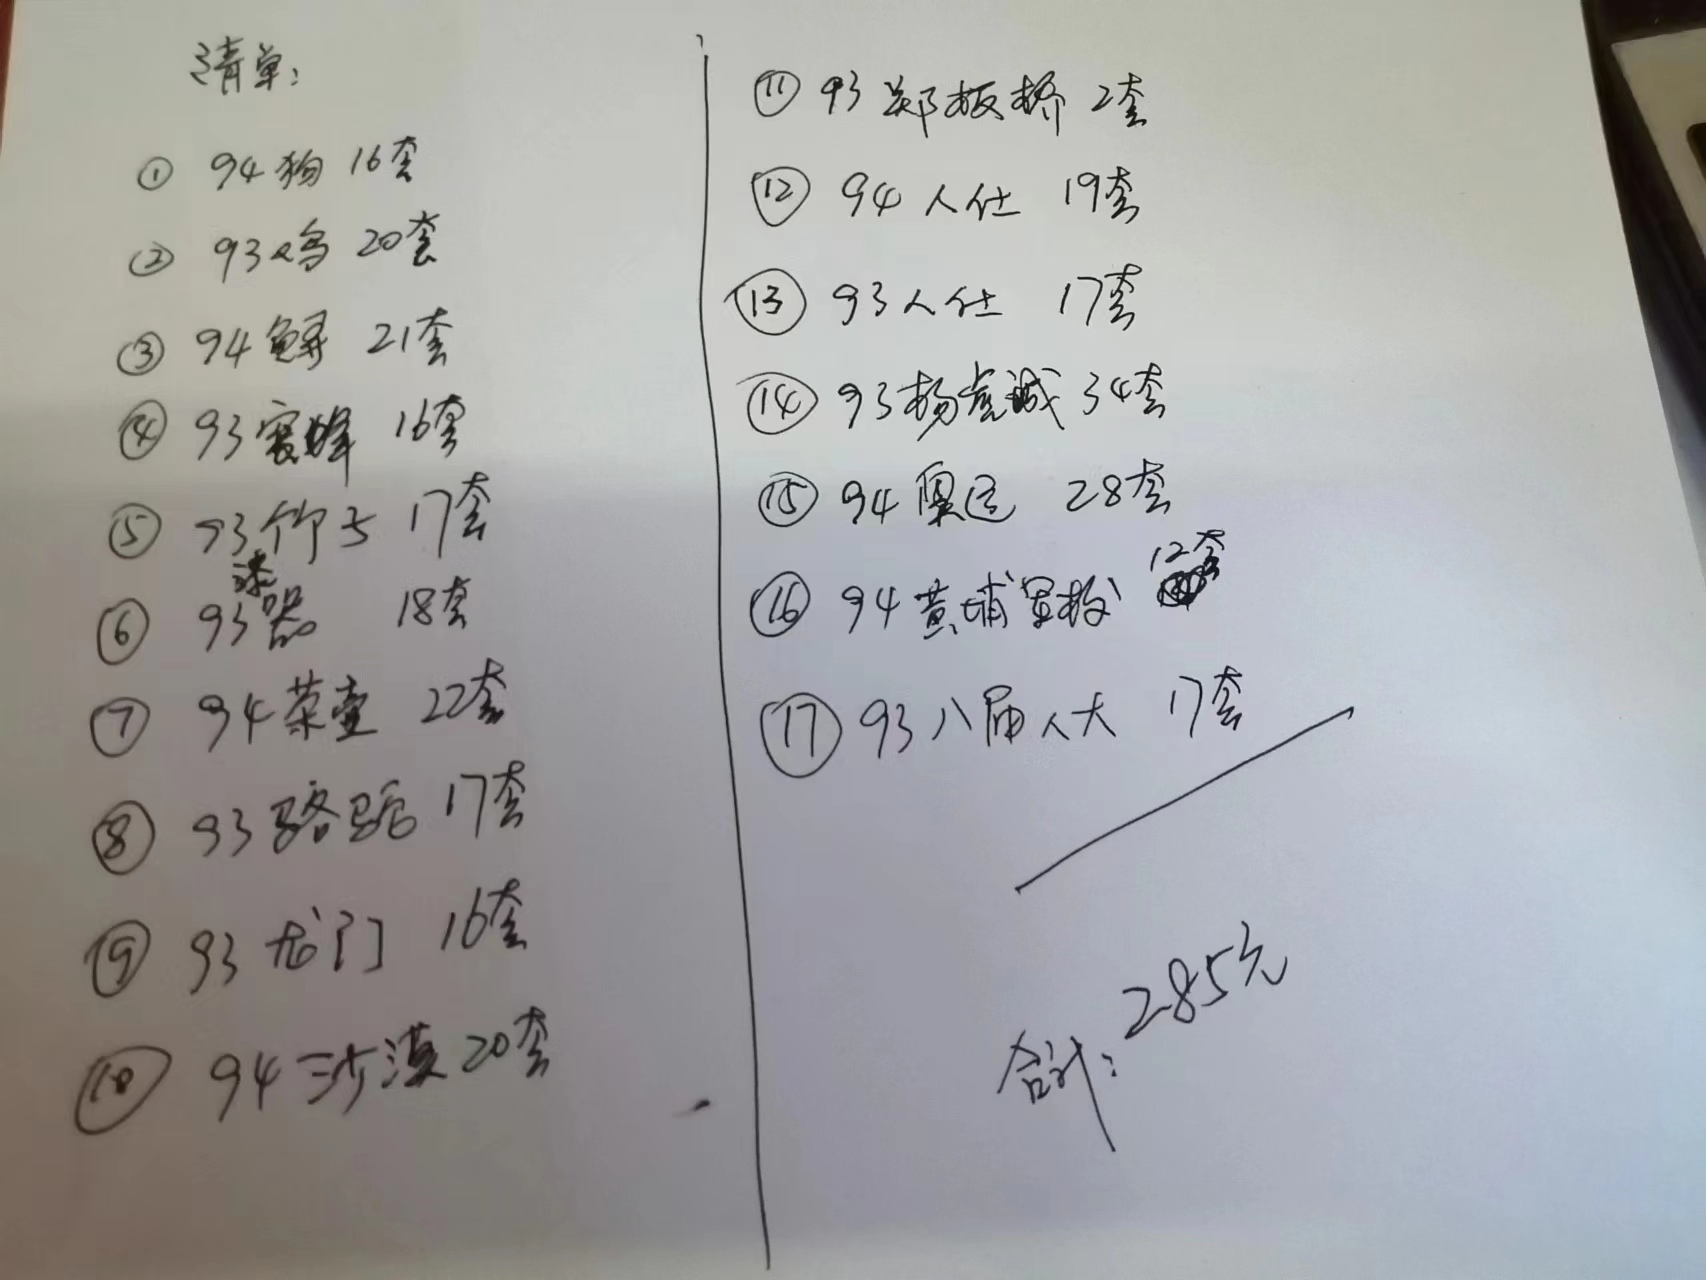 清单:
① 94狗 16套
② 93鸡 20套
③ 94鲟 21套
④ 93蜜蜂 16套
⑤ 93竹子 17套
⑥ 93漆器 18套
⑦ 94茶壶 22套
⑧ 93骆驼 17套
⑨ 93龙门 16套
⑩ 94沙漠 20套
⑪ 93郑板桥 2套
⑫ 94人仕 19套
⑬ 93人仕 17套
⑭ 93杨虎诚 34套
⑮ 94奥运 28套
⑯ 94黄埔军校 12套
⑰ 93八届人大 17套
合计: 285元